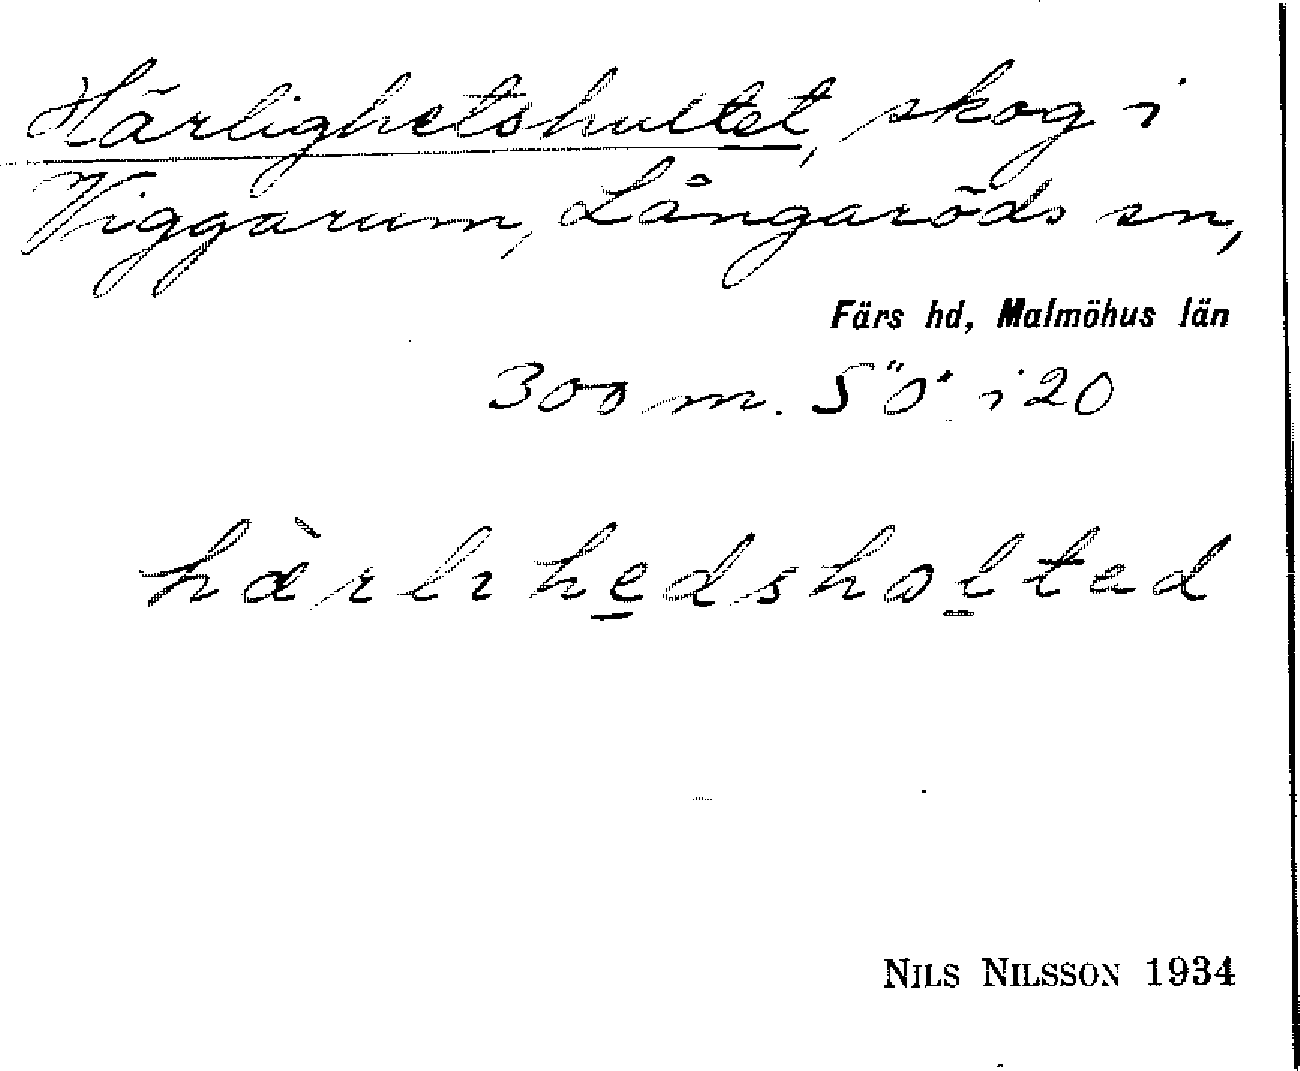 Härlighetshultet, skog i
Viggarum, Långaröds sn,
Färs hd, Malmöhus län
300 m. SÖ. i 20
hæ̀rlıhedsholted
NILS NILSSON 1934